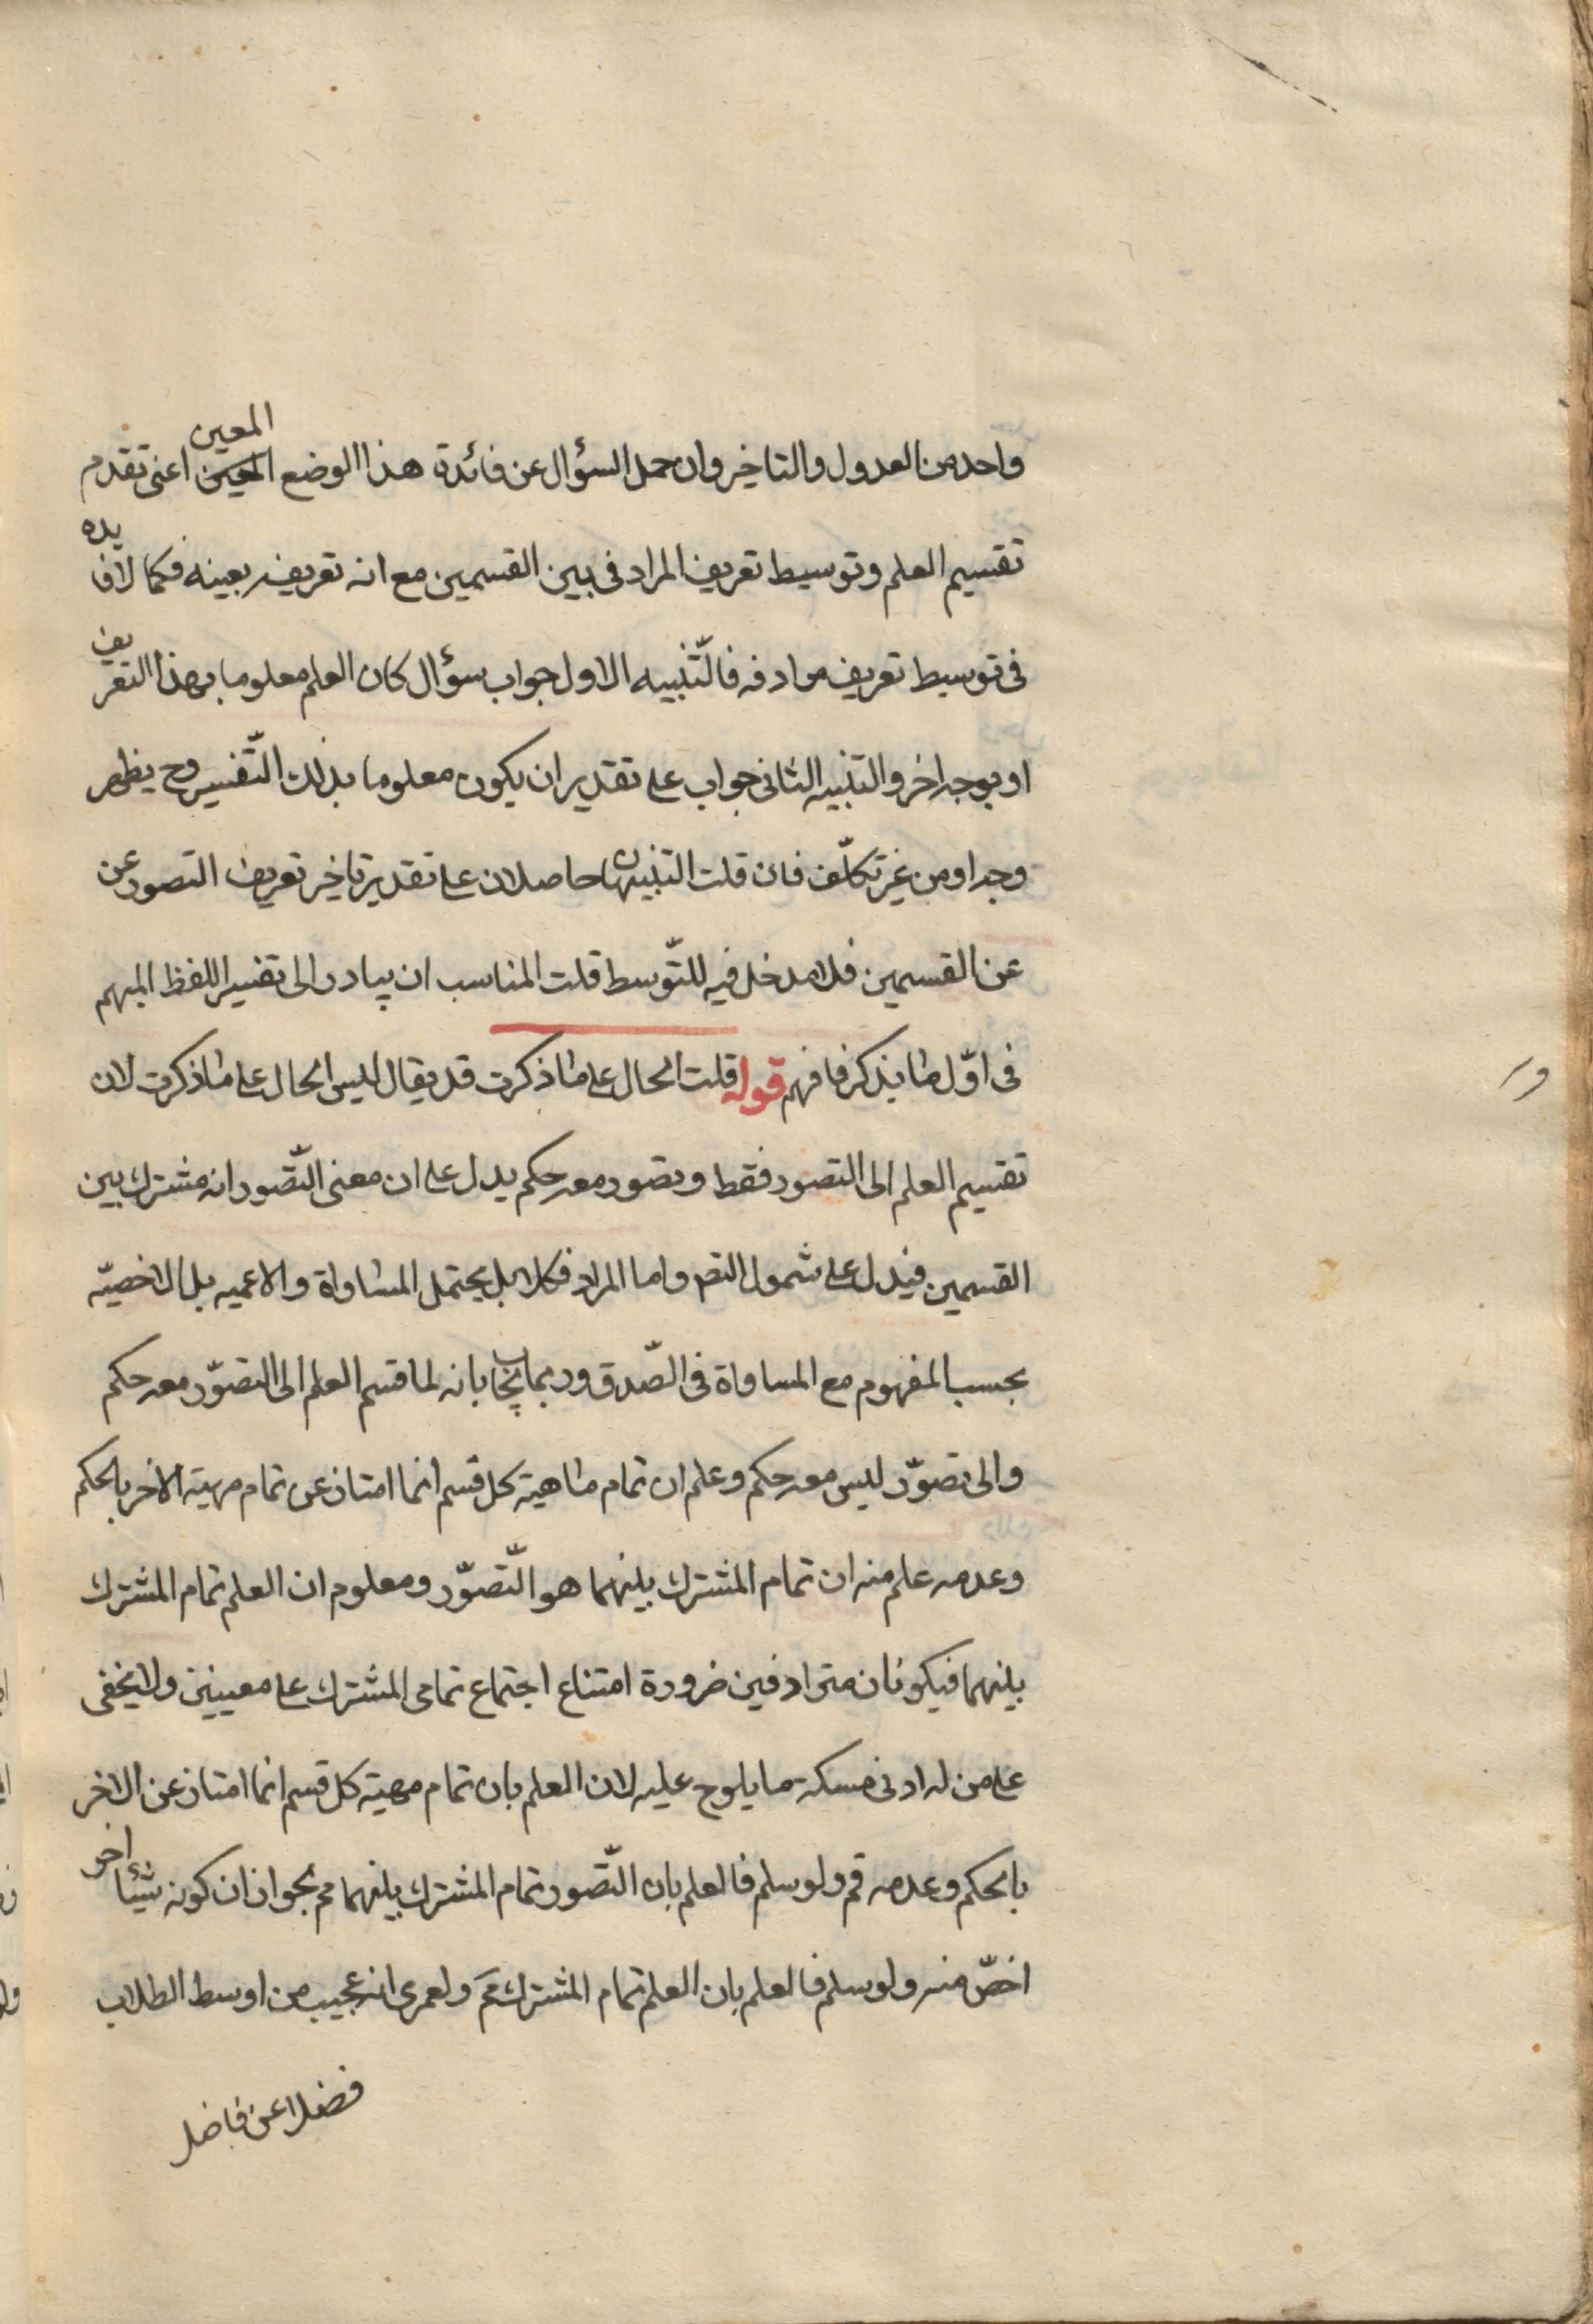 واحد من العدول والتاخير وان حمل السؤال عن فائدة هذا الوضع المعين اعنى تقدم
تقسيم العلم وتوسيط تعريف المرادف بين القسمين مع انه تعريفه بعينه فكما لافايده
فى توسيط تعريف مرادفه فالتّنبيه الاول جواب سؤال كان العلم معلوما بهذا التعريف
او بوجه اخر والتنبيه الثانى جواب على تقدير ان يكون معلوما بذلك التّفسير وح يظهر
وجه او من غير تكلّف فان قلت التنبيهان حاصلان على تقدير تاخير تعريف التصور عن
عن القسمين فلا مدخل فيه للتّوسط قلت المناسب ان يبادر الى تفسير اللفظ المبهم
فى اوّل ما يذكر فافهم قوله قلت الحال على ما ذكرت قد يقال ليس الحال على ما ذكرت لان
تقسيم العلم الى التصور فقط وتصور معه حكم يدل على ان معنى التّصور انه مشترك بين
القسمين فيدل على شمول التصور واما المرادف فكلا بل يحتمل المساواة والاعميه بل الاخصيّه
بحسب المفهوم مع المساواة فى الصّدق وربما يجاب بانه لما قسم العلم الى التصوّر معه حكم
والى تصوّر ليس معه حكم وعلم ان تمام ماهية كل قسم انما امتاز عن تمام مهية الاخر بالحكم
وعدمه علم منه ان تمام المشترك بينهما هو التّصوّر ومعلوم ان العلم تمام المشترك
بينهما فيكونان مترادفين ضرورة امتناع اجتماع تمامى المشترك على معينين ولا يخفى
على من له ادنى مسكة ما يلوح عليه لان العلم بان تمام مهية كل قسم انما امتاز عن الاخر
بالحكم وعدمه قم ولو سلم فالعلم بان التّصور تمام المشترك بينهما مم بجواز ان كونه شيئا اخر
اخصّ منه ولو سلم فالعلم بان العلم تمام المشترك مم ولعمرى انه عجيب من اوسط الطلاب
فضلا عن فاضل